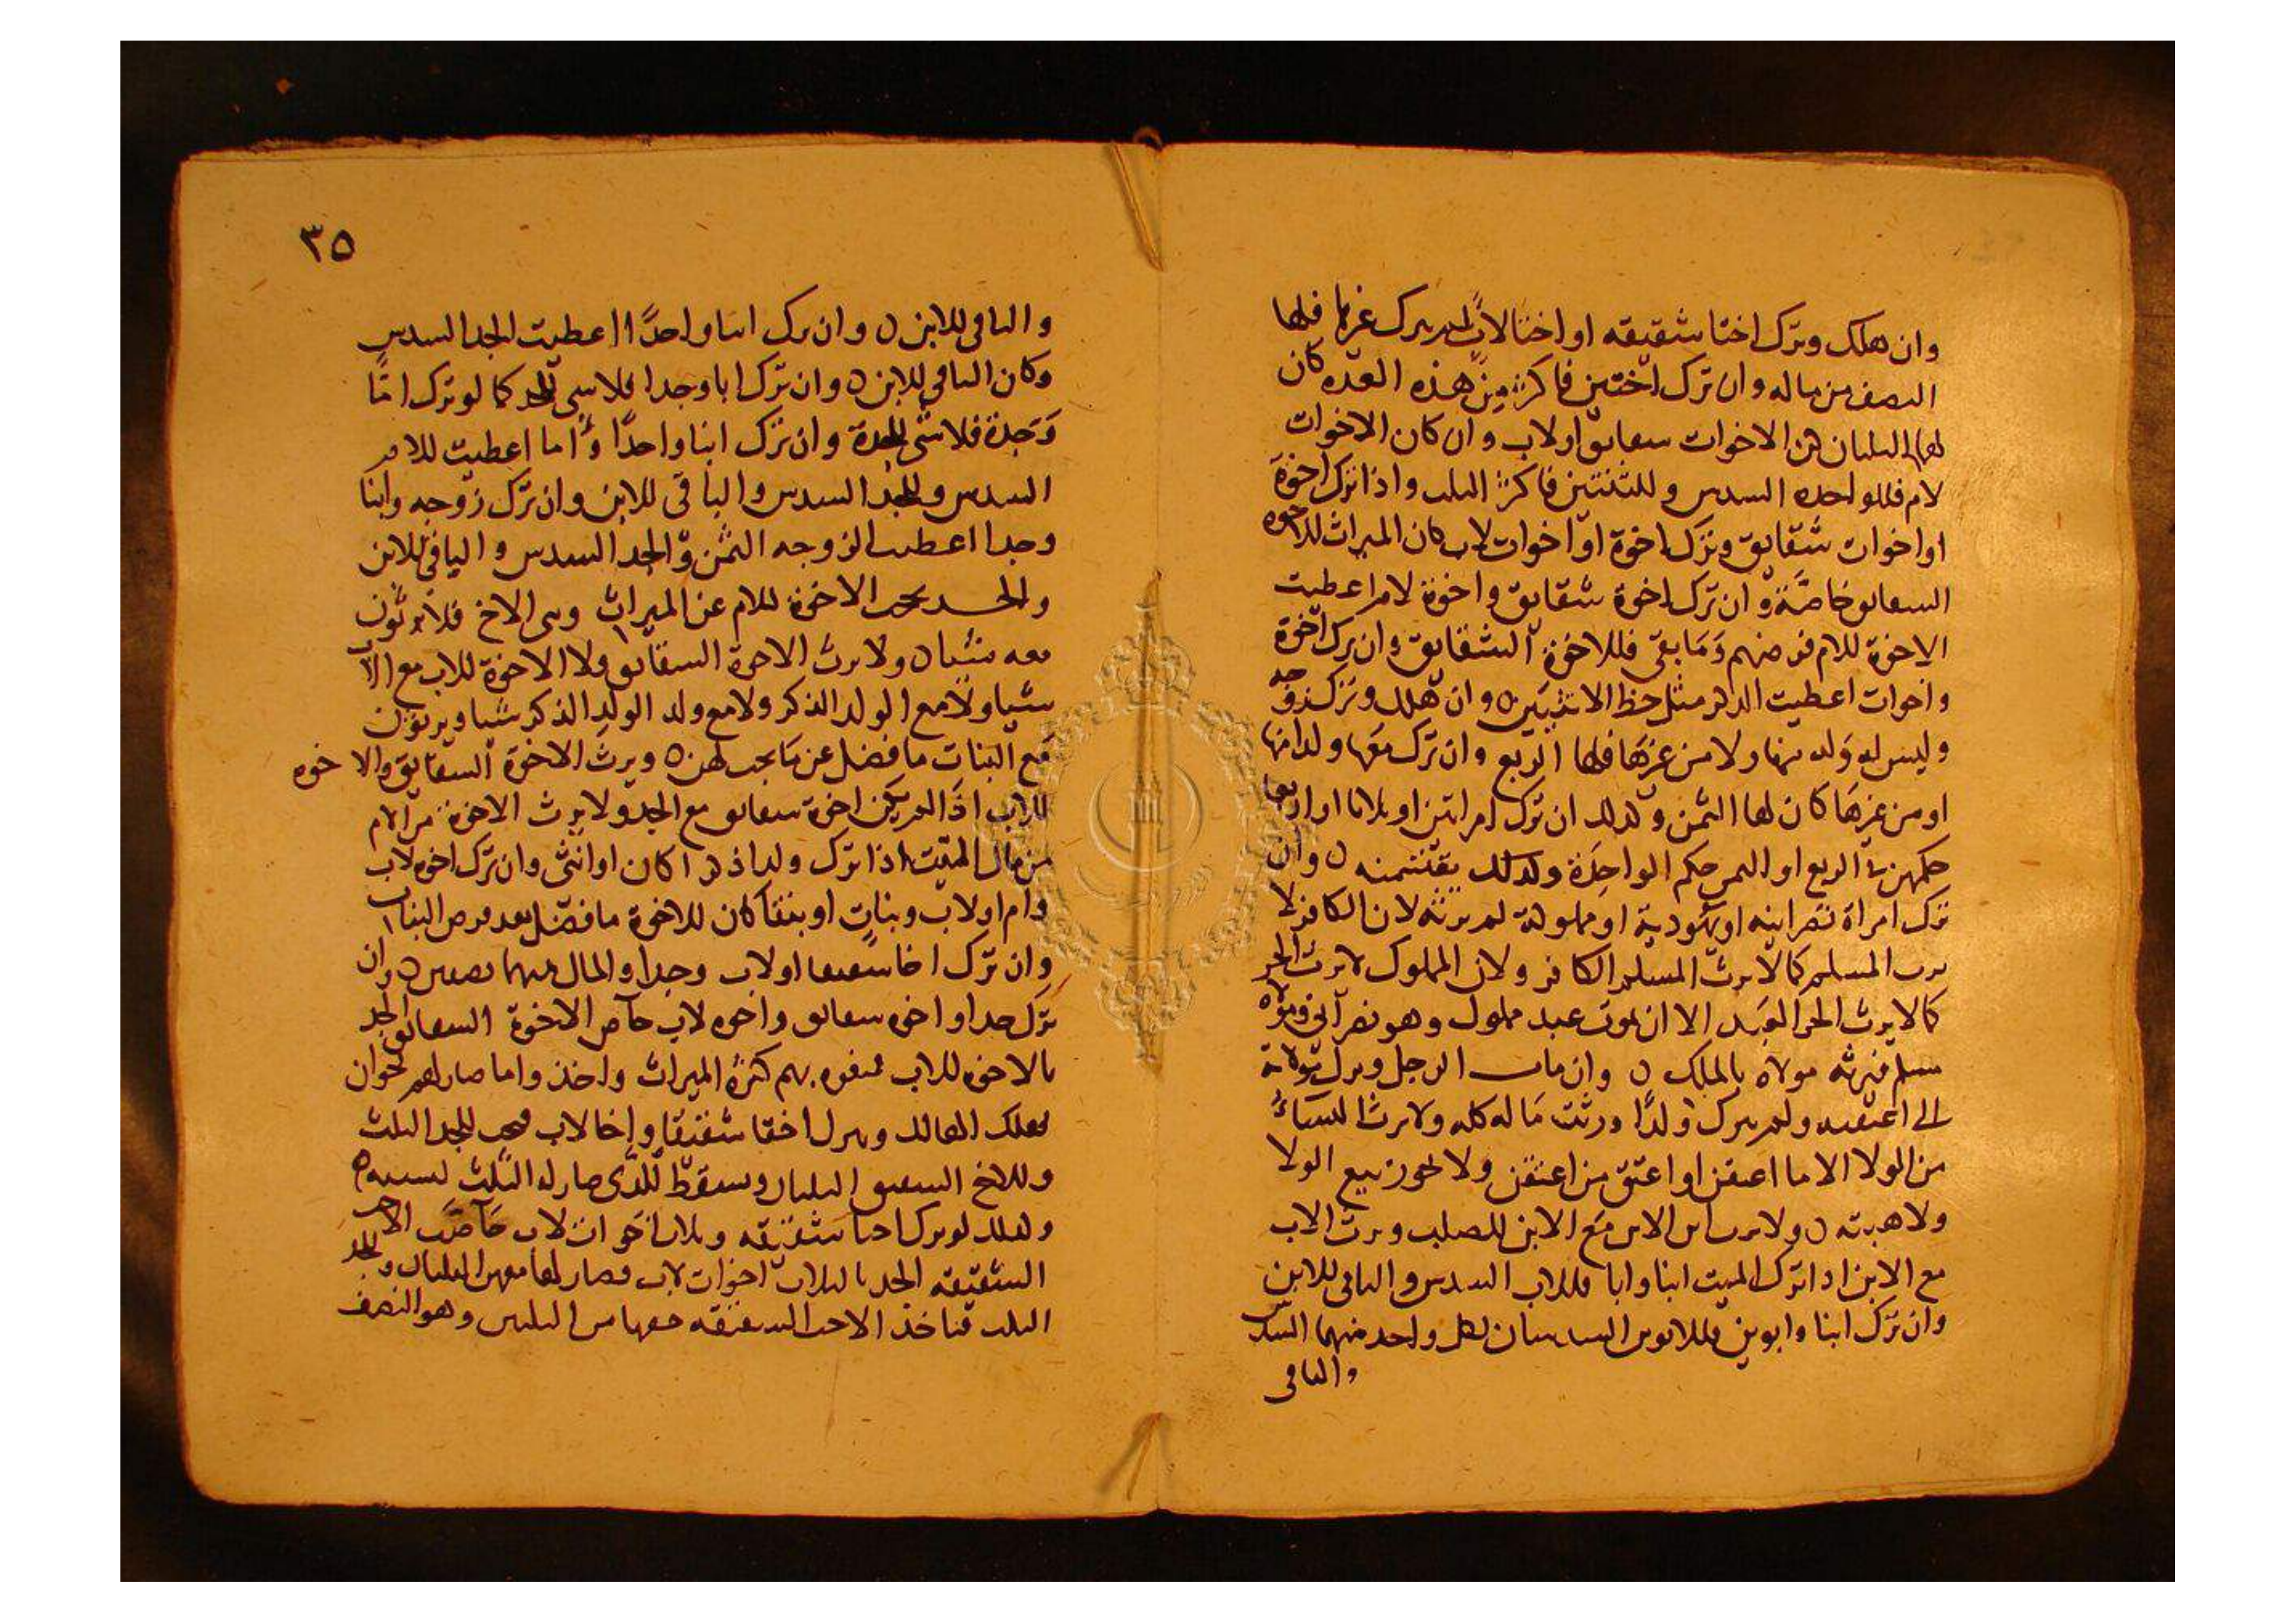 وان هلك وترك اختا شقيقه او اختا لاب لم يترك غيرها فلها
النصف من ماله وان ترك اختين فاكثر من هذه العده كان
لهما الثلثان هن الاخوات شقايق او لاب وان كان الاخوات
لام فللواحده السدس وللثنتين فاكثر الثلث واذا ترك اخوة
او اخوات شقايق وترك اخوة او اخوات لاب كان الميراث للاخوه
الشقايق خاصة وان ترك اخوة شقايق واخوة لام اعطيت
الاخوة للام فرضهم وما بقي فللاخوة الشقايق وان ترك اخوة
واخوات اعطيت الذكر مثل حظ الانثيين ه وان هلك وترك زوجه
وليس له ولد منها ولا من غيرها فلها الربع وان ترك معها ولدا منها
او من غيرها كان لها الثمن وكذلك ان ترك امراتين او ثلاثا او اربعا
حكمهن في الربع او الثمن حكم الواحدة وكذلك يقتسمنه ن وان
ترك امراة نصرانيه او يهودية او مملوكة لم ترثه لان الكافر لا
يرث المسلم كما لا يرث المسلم الكافر ولان المملوك لا يرث الحر
كما لا يرث الحر العبد الا ان يموت عبد مملوك وهو نصراني ومولاه
مسلم فيرثه مولاه بالملك ن وان مات الرجل وترك مولاته
التي اعتقته ولم يترك ولدا ورثت ماله كله ولا يرث النساء
من الولا الا ما اعتقن او اعتق من اعتقن ولا يجوز بيع الولا
ولا هبته ن ولا يرث ابن الابن مع الابن للصلب ويرث الاب
مع الابن اذا ترك الميت ابنا وابا فللاب السدس والباقي للابن
وان ترك ابنا وابوين فللابوين السدسان لكل واحد منهما السدس
والباقي
٣٥
والباقي للابن ن وان ترك ابنا واحدًا اعطيت الجد السدس
وكان الباقي للابن ن وان ترك ابا وجدا فلا شي للجد كما لو ترك امًّا
وجدة فلا شي للجدة وان ترك ابنا واحدًا واما اعطيت للام
السدس وللجد السدس والباقي للابن وان ترك زوجه وابنا
وجدا اعطيت الزوجه الثمن والجد السدس والباقي للابن
والجد يحجب الاخوة للام عن الميراث وبني الاخ فلا يرثون
معه شيا ن ولا يرث الاخوة الشقايق ولا الاخوة للاب مع الاب
شيا ولا مع الولد الذكر ولا مع ولد الولد الذكر شيا ويرثون
مع البنات ما فضل عن ما يجب لهن ن ويرث الاخوة الشقايق والاخوه
للاب اذا لم يكن اخوة شقايق مع الجد ولا يرث الاخوة من الام
من مال الميت اذا ترك ولدا ذكرا كان او انثى وان ترك اخوه لاب
وام او لاب وبنات او بنتا كان للاخوة ما فضل بعد فرض البنات
وان ترك اخا شقيقا او لاب وجدا فالمال بينهما نصفين ن وان
ترك جدا واخوه شقايق واخوه لاب حاص الاخوة الشقايق الجد
بالاخوه للاب كثرة الميراث واخذوا ما صار لهم
الهالك وترك اخا شقيقا واخا لاب للجد الثلث
وللاخ الشقيق الثلثان وسقط الذي صار له الثلث
وكذلك لو ترك اختا شقيقه وثلاث اخوات لاب حاصت الاخت
الشقيقه الجد بالثلاث اخوات لاب فصار لها معهن الثلثان وللجد
الثلث فتاخذ الاخت الشقيقه حقها من الثلثين وهو النصف